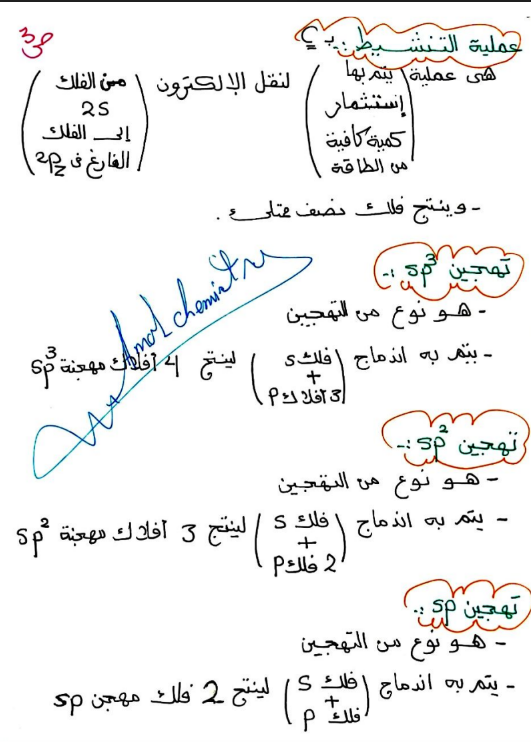 ص3
عملية التنشيط :- لـ C
هى عملية (يتم بها إستثمار كمية كافية من الطاقة) لنقل الإلكترون (من الفلك 2S إلى الفلك الفارغ فى 2Pz)
- وينتج فلك نصف ممتلئ .
تهجين sp³ :-
- هو نوع من التهجين
- يتم به اندماج (فلك s + 3 أفلاك P) لينتج 4 أفلاك مهجنة sp³
Amal chemistry
تهجين sp² :-
- هو نوع من التهجين
- يتم به اندماج (فلك s + 2 فلك P) لينتج 3 أفلاك مهجنة sp²
تهجين sp :-
- هو نوع من التهجين
- يتم به اندماج (فلك s + فلك P) لينتج 2 فلك مهجن sp